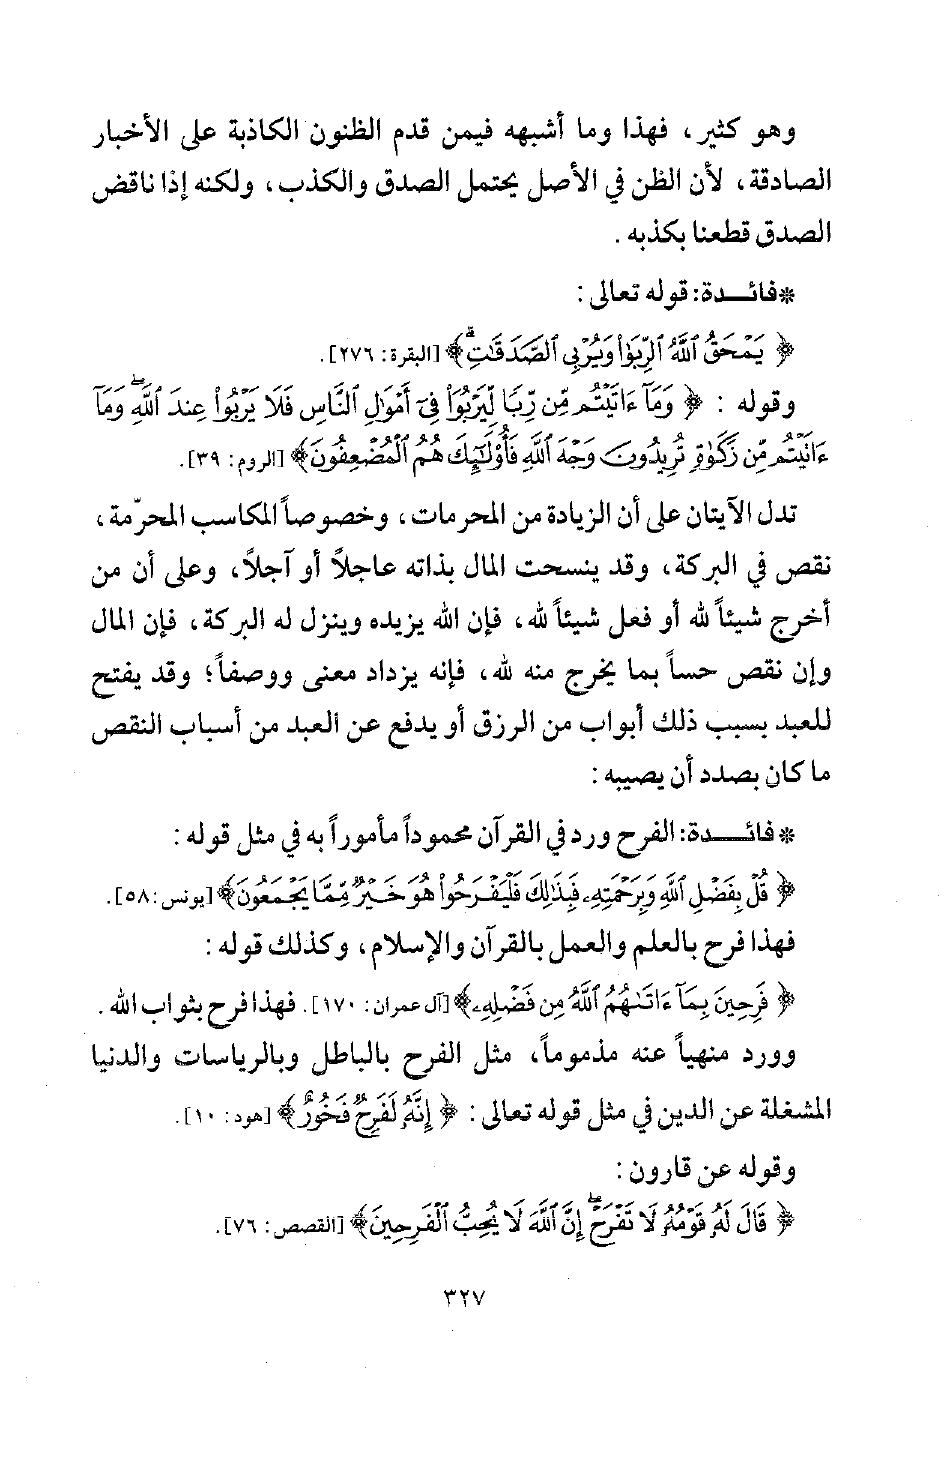 وهو كثير، فهذا وما أشبهه فيمن قدم الظنون الكاذبة على الأخبار
الصادقة، لأن الظن في الأصل يحتمل الصدق والكذب، ولكنه إذا ناقض
الصدق قطعنا بكذبه .
*فائـــدة: قوله تعالى :
﴿ يَمْحَقُ ٱللَّهُ ٱلرِّبَوٰا۟ وَيُرْبِى ٱلصَّدَقَـٰتِ ۗ﴾ [البقرة: ٢٧٦].
وقوله : ﴿ وَمَآ ءَاتَيْتُم مِّن رِّبًا لِّيَرْبُوَا۟ فِىٓ أَمْوَٰلِ ٱلنَّاسِ فَلَا يَرْبُوا۟ عِندَ ٱللَّهِ ۖ وَمَآ
ءَاتَيْتُم مِّن زَكَوٰةٍ تُرِيدُونَ وَجْهَ ٱللَّهِ فَأُو۟لَـٰٓئِكَ هُمُ ٱلْمُضْعِفُونَ﴾ [الروم: ٣٩].
تدل الآيتان على أن الزيادة من المحرمات، وخصوصاً المكاسب المحرّمة،
نقص في البركة، وقد ينسحت المال بذاته عاجلاً أو آجلاً، وعلى أن من
أخرج شيئاً لله أو فعل شيئاً لله، فإن الله يزيده وينزل له البركة، فإن المال
وإن نقص حساً بما يخرج منه لله، فإنه يزداد معنى ووصفاً؛ وقد يفتح
للعبد بسبب ذلك أبواب من الرزق أو يدفع عن العبد من أسباب النقص
ما كان بصدد أن يصيبه :
*فائـــدة: الفرح ورد في القرآن محموداً مأموراً به في مثل قوله :
﴿ قُلْ بِفَضْلِ ٱللَّهِ وَبِرَحْمَتِهِۦ فَبِذَٰلِكَ فَلْيَفْرَحُوا۟ هُوَ خَيْرٌ مِّمَّا يَجْمَعُونَ﴾ [يونس: ٥٨].
فهذا فرح بالعلم والعمل بالقرآن والإسلام، وكذلك قوله :
﴿ فَرِحِينَ بِمَآ ءَاتَىٰهُمُ ٱللَّهُ مِن فَضْلِهِۦ﴾ [آل عمران: ١٧٠]. فهذا فرح بثواب الله .
وورد منهياً عنه مذموماً، مثل الفرح بالباطل وبالرياسات والدنيا
المشغلة عن الدين في مثل قوله تعالى : ﴿ إِنَّهُۥ لَفَرِحٌ فَخُورٌ﴾ [هود: ١٠].
وقوله عن قارون :
﴿ قَالَ لَهُۥ قَوْمُهُۥ لَا تَفْرَحْ ۖ إِنَّ ٱللَّهَ لَا يُحِبُّ ٱلْفَرِحِينَ﴾ [القصص: ٧٦].
٣٢٧